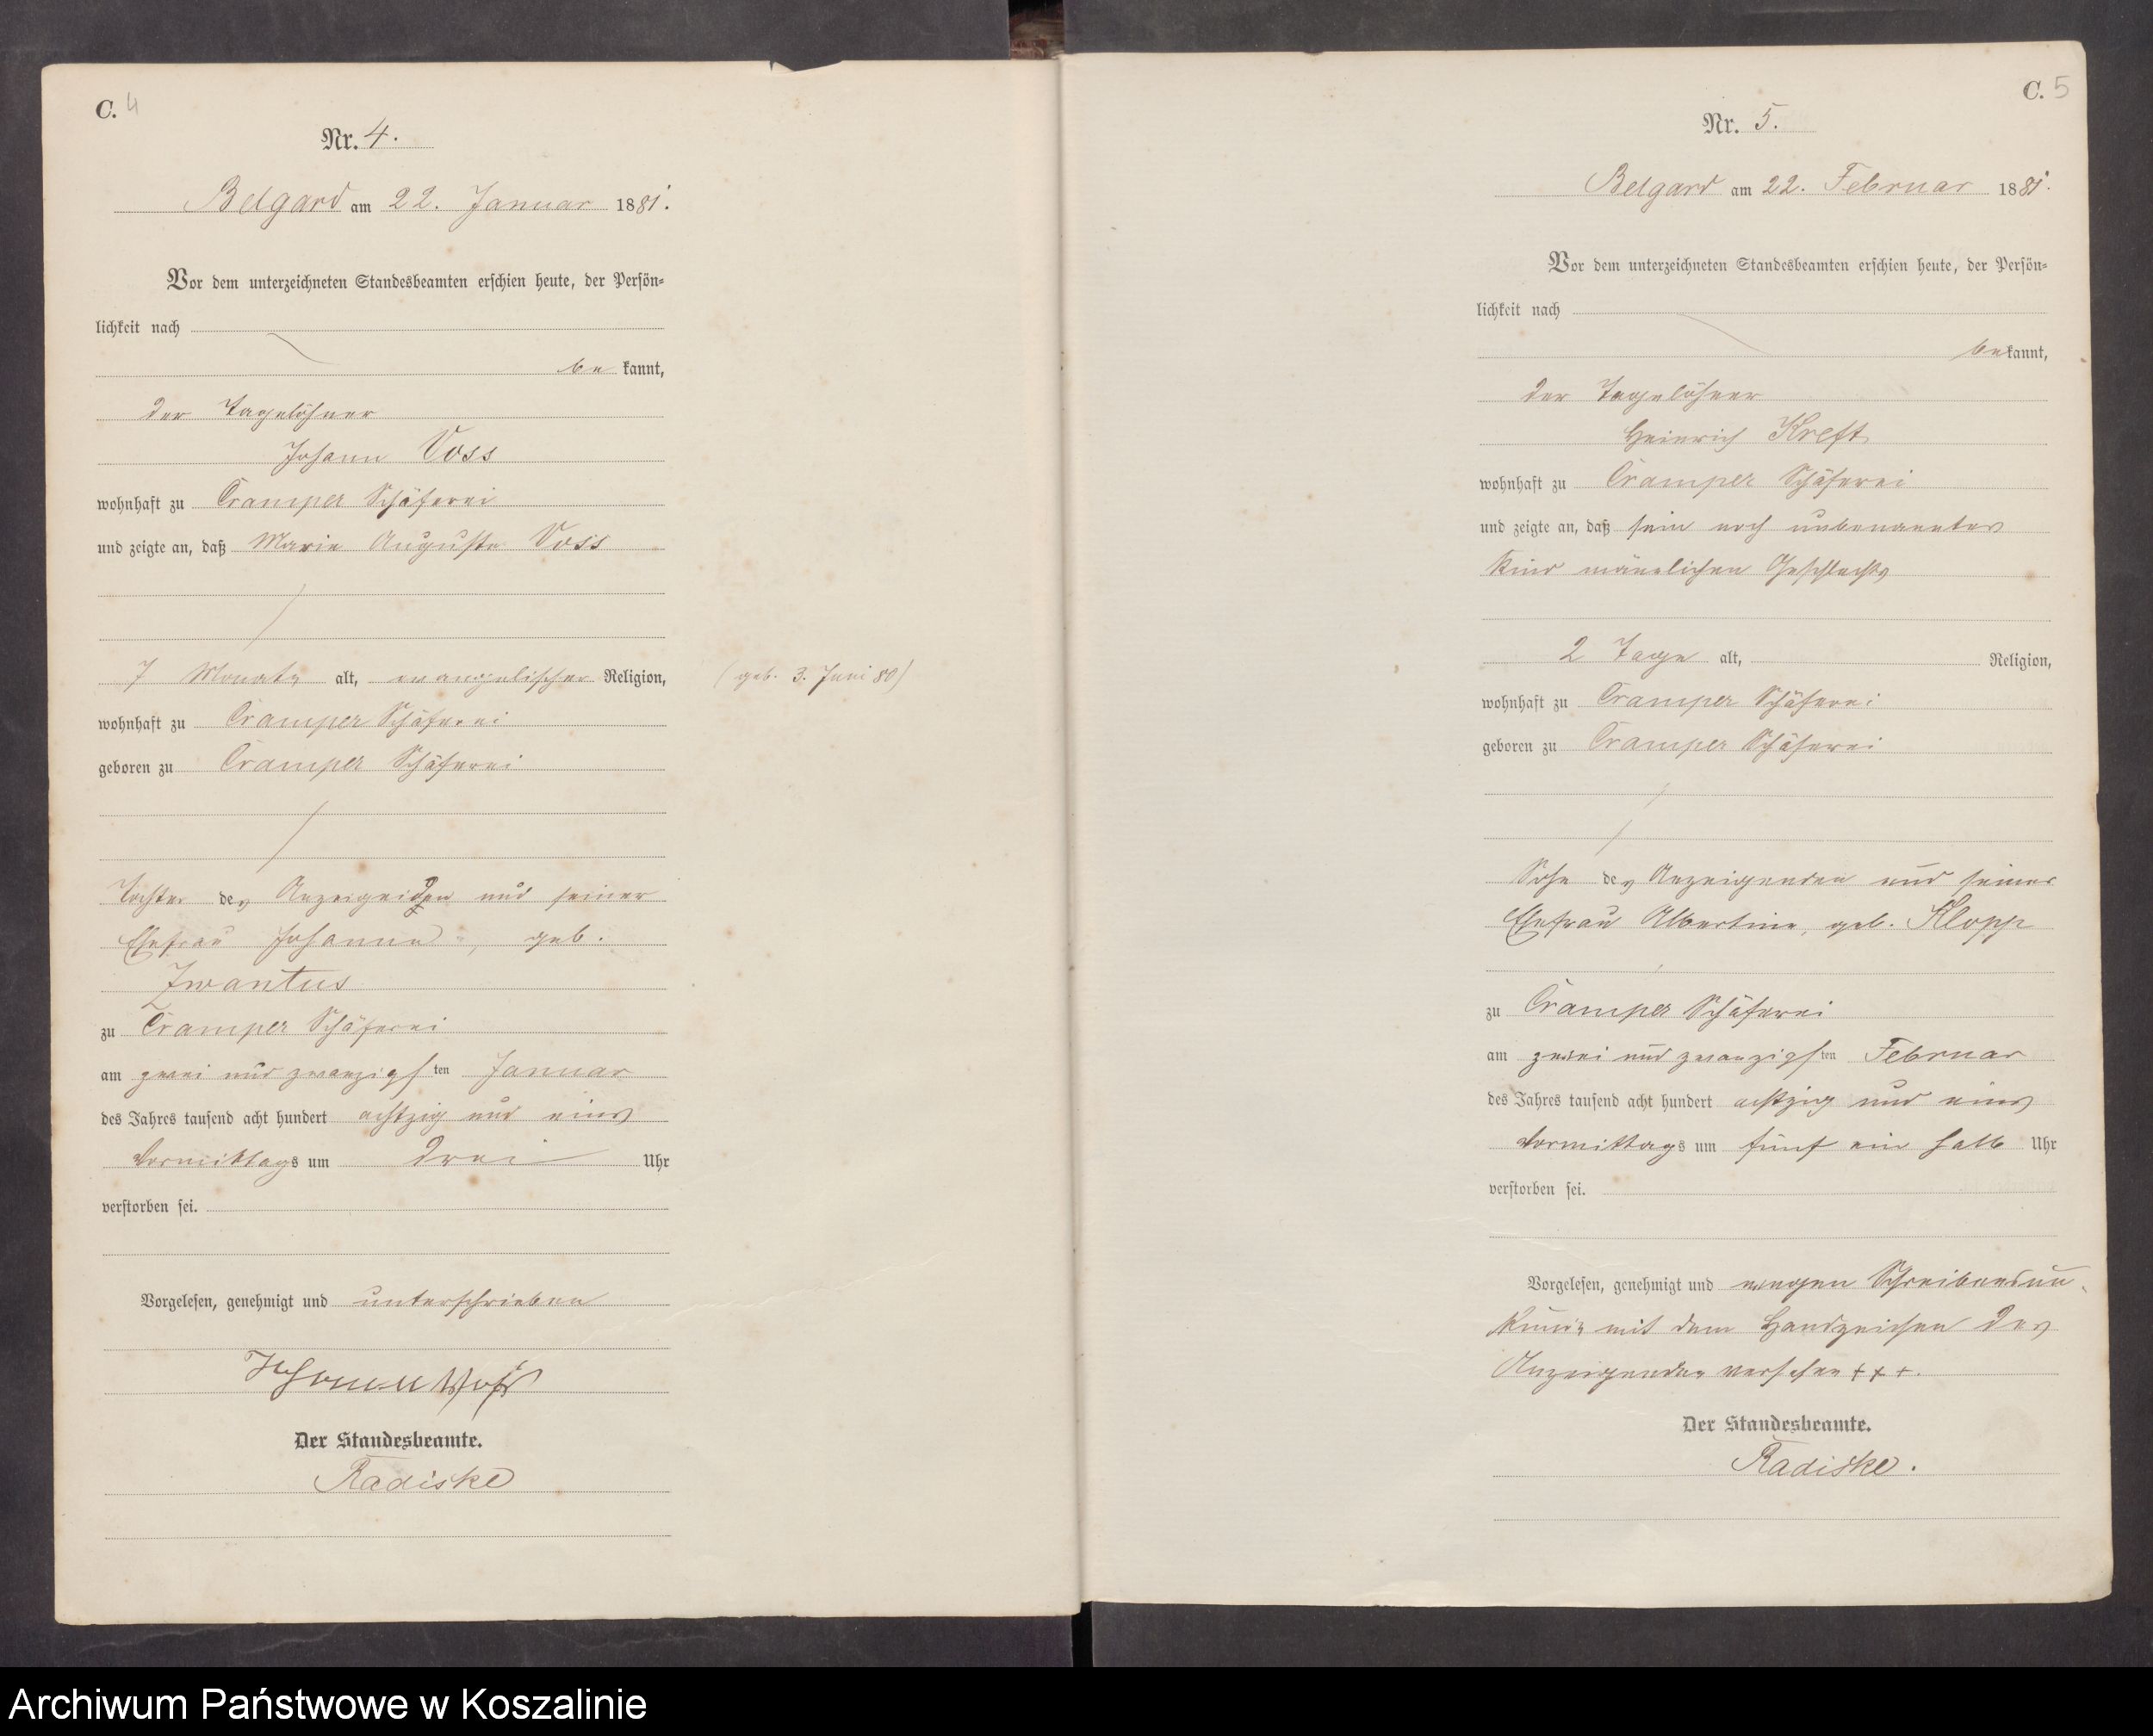 C. 4
Nr. 4.
Belgard am 22. Januar 1881.
Vor dem unterzeichneten Standesbeamten erschien heute, der Persön-
lichkeit nach
be kannt,
der Tagelöhner
Johann Voss
wohnhaft zu Cramper Schäferei
und zeigte an, daß Marie Auguste Voss
7 Monate alt, evangelischer Religion, (geb. 3. Juni 80)
wohnhaft zu Cramper Schäferei
geboren zu Cramper Schäferei
Tochter des Anzeigenden und seiner
Ehefrau Johanne, geb.
Zwantus
zu Cramper Schäferei
am zwei und zwanzigsten Januar
des Jahres tausend acht hundert achtzig und eins
Vormittags um drei Uhr
verstorben sei.
Vorgelesen, genehmigt und unterschrieben
Johann Voß
Der Standesbeamte.
Radiske
C. 5
Nr. 5.
Belgard am 22. Februar 1881.
Vor dem unterzeichneten Standesbeamten erschien heute, der Persön-
lichkeit nach
bekannt,
der Tagelöhner
Heinrich Kreft
wohnhaft zu Cramper Schäferei
und zeigte an, daß sein noch unbenanntes
Kind männlichen Geschlechts
2 Tage alt, Religion,
wohnhaft zu Cramper Schäferei
geboren zu Cramper Schäferei
Sohn des Anzeigenden und seiner
Ehefrau Albertine, geb. Klopp
zu Cramper Schäferei
am zwei und zwanzigsten Februar
des Jahres tausend acht hundert achtzig und eins
Vormittags um fünf ein halb Uhr
verstorben sei.
Vorgelesen, genehmigt und wegen Schreibensun-
kunde mit dem Handzeichen des
Anzeigenden versehen +++.
Der Standesbeamte.
Radiske.
Archiwum Państwowe w Koszalinie